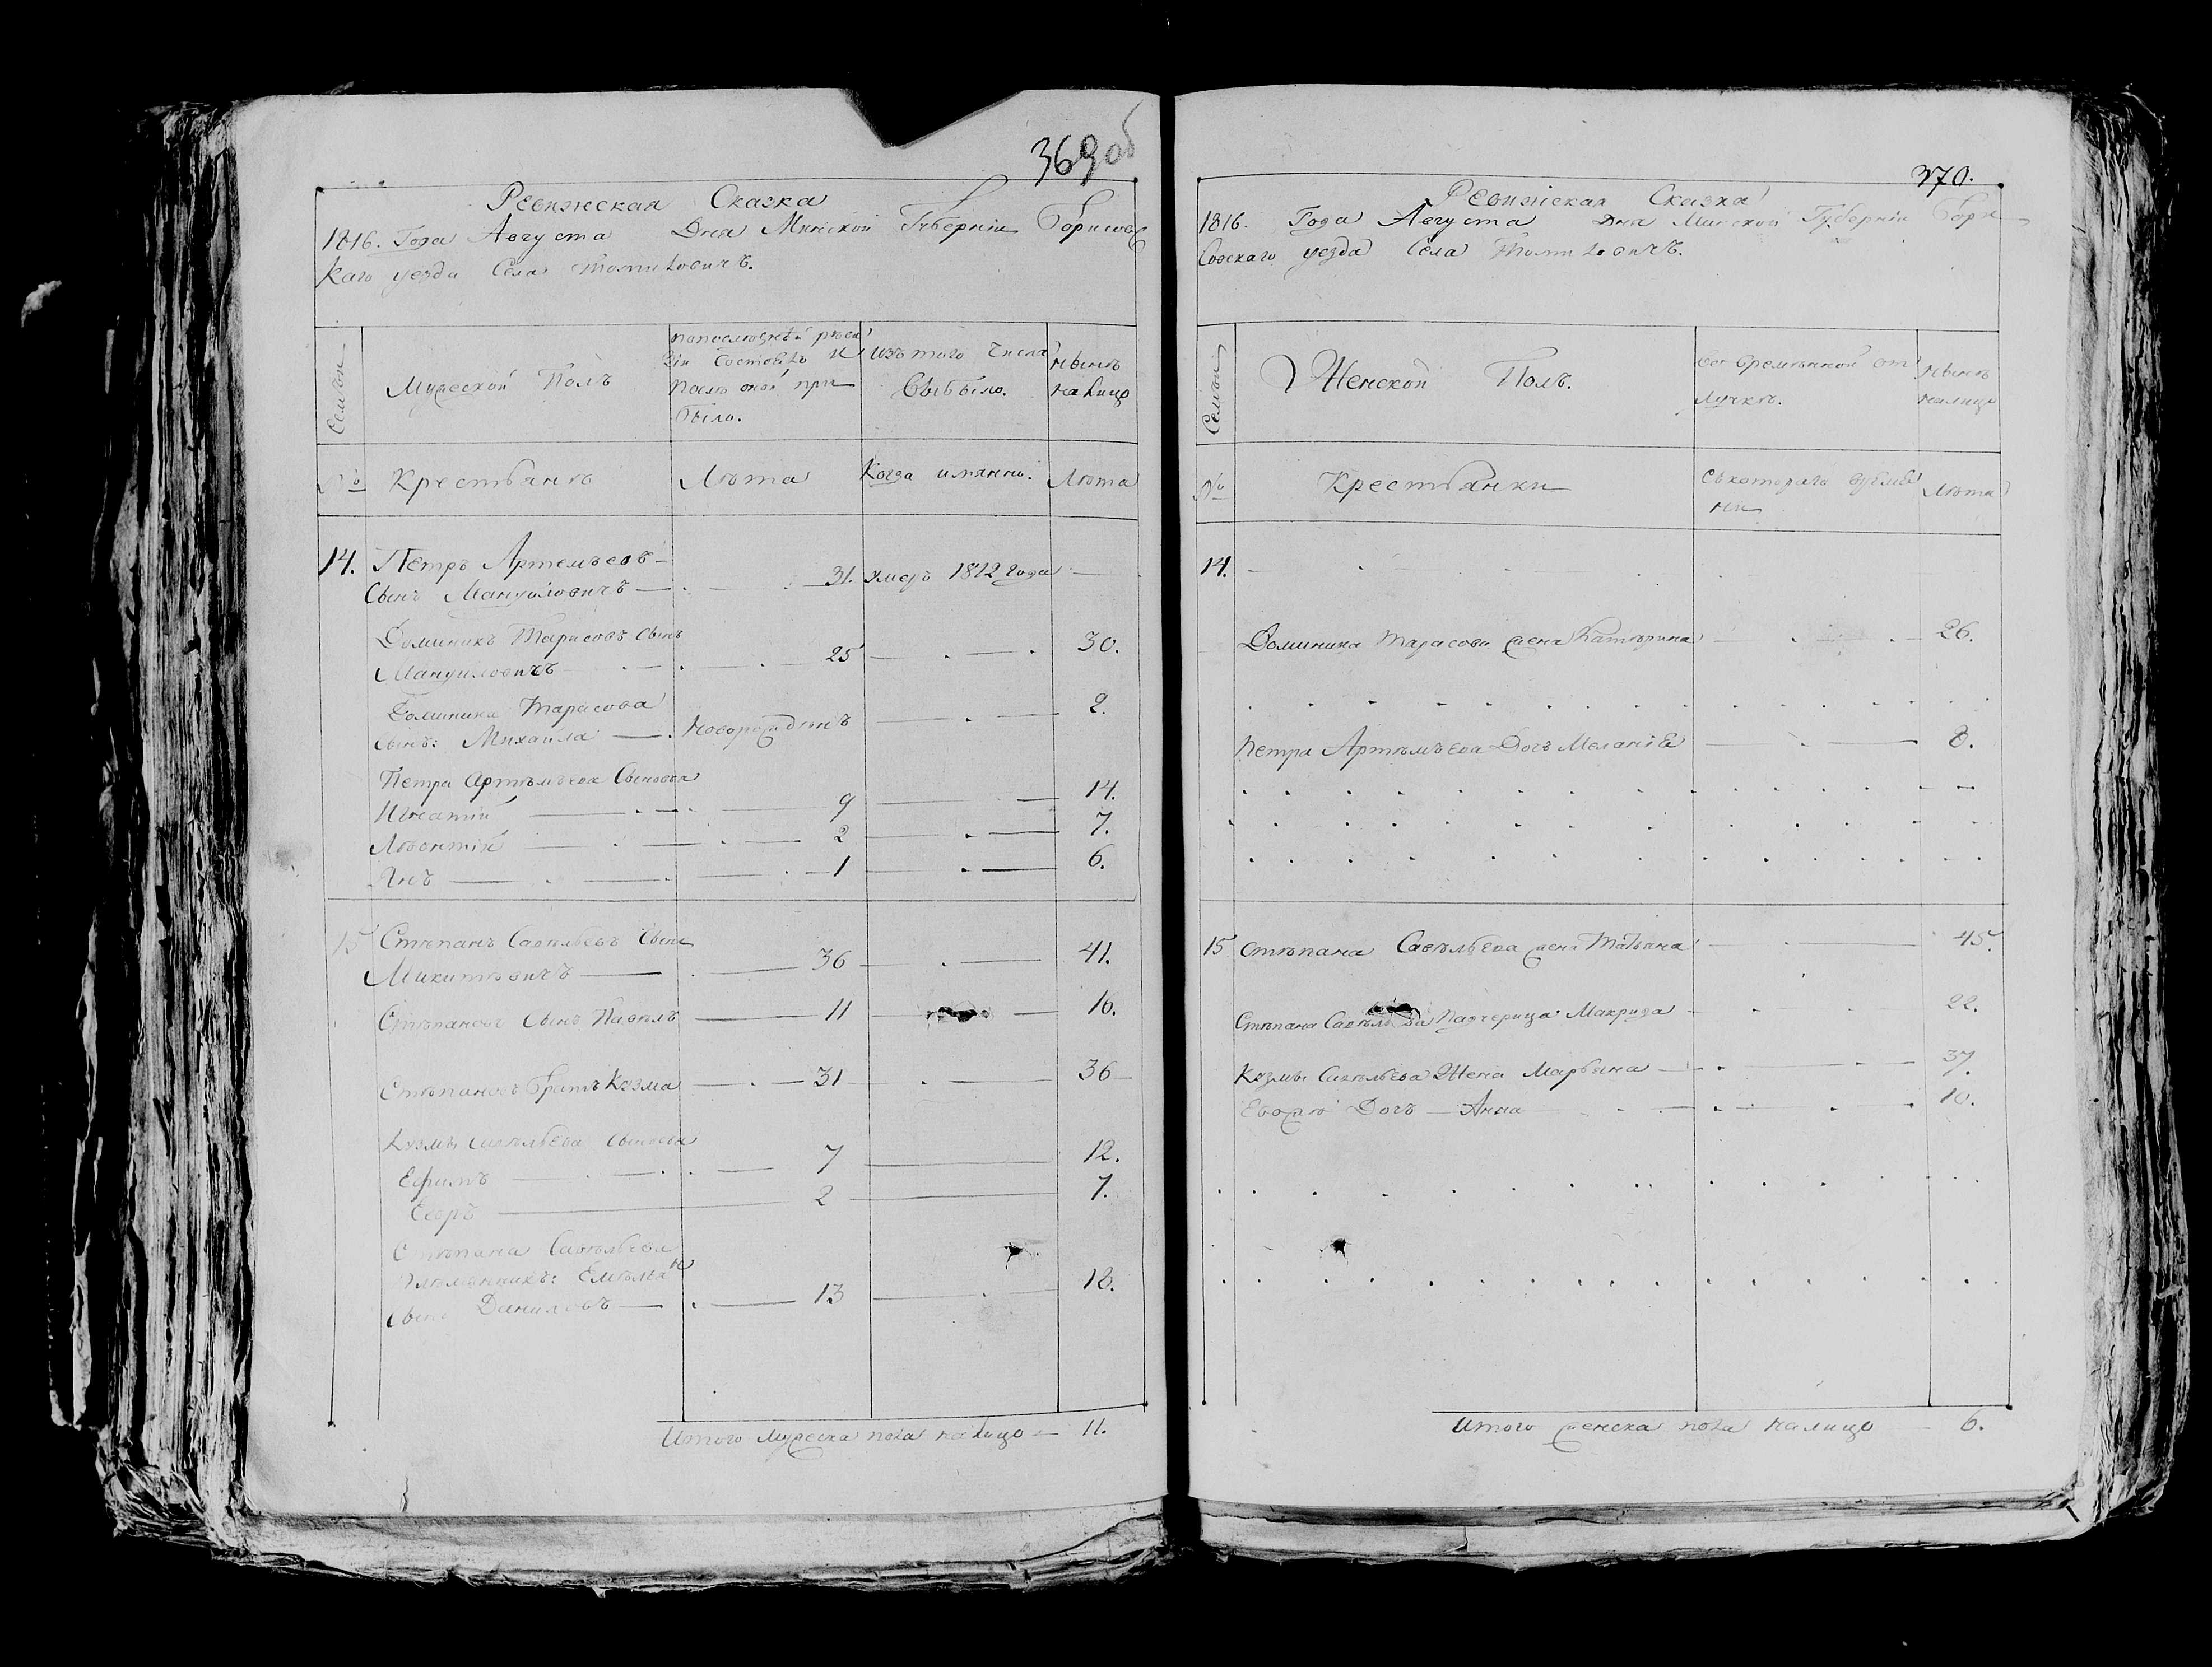 369 об
Ревижская Сказка
1816. Года Августа Дня Минской Губерніи Борисовс
каго уезда Села
Семьи
Мужеской Полъ
Состояло и
после оной при
было.
изъ того числа
Выбыло.
Нынѣ
налицо
№
Крестьянѣ
Лѣта
Когда имянно.
Лѣта
14. Петръ Артемъевъ
Сынъ Мануиловичъ 31. умеръ 1812 года
Доминикъ Тарасовъ сынъ
Мануиловичъ 25 30.
Доминика Тарасова
сынъ: Михаила Новорожденъ 2.
Петра Артѣмъева Сыновья
Игнатій 9 14.
Лѣвонтій 2 7.
Янъ 1 6.
15 Стѣпанъ Савѣльевъ Сынъ
Микитѣвичъ 36 41.
Стѣпановъ Сынъ Павѣлъ 11 16.
Стѣпановъ братъ Кузма 31 36
Кузмы Савѣльева сыновья
Ефимъ 7 12.
Егоръ 2 7.
Стѣпана Савѣльева
Племянникъ: Емѣлья н
Сынъ Даниловъ 13 18.
Итого мужеска пола налицо 11.
370.
Ревижская Сказка
1816. Года Августа Дня Минской Губерніи Бори-
совскаго уезда Села
Семьи
Женской Полъ.
во временной от
лучкѣ.
Нынѣ
налицо
№
Крестьянки
Съ котораго времѣ
ни
Лѣта
14.
Доминика Тарасова жена Катѣрина 26.
Петра Артѣмъева Дочь Меланія 8.
15 Стѣпана Савѣльева жена Татьяна 45.
Стѣпана Савѣльева Падчерица Макрида 22.
Кузмы Савѣльева Жена Марьяна 37.
Евожѣ Дочь Анна 10.
Итого женска пола налицо 6.